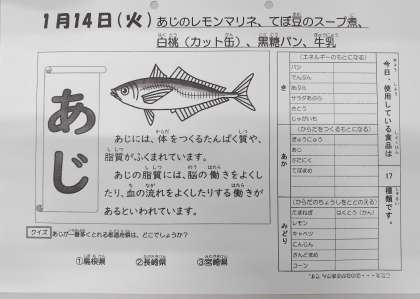 1月14日(火) あじのレモンマリネ、てぼ豆のスープ煮、
白桃(カット缶)、黒糖パン、牛乳
あじ
あじには、体をつくるたんぱく質や、
脂質がふくまれています。
あじの脂質には、脳の働きをよくし
たり、血の流れをよくしたりする働きが
あるといわれています。
クイズ あじが一番多くとれる都道府県は、どこでしょうか?
①島根県 ②長崎県 ③宮崎県
今日、使用している食品は
17
種類です。
き
(エネルギーのもとになる)
パン
でんぷん
サラダあぶら
さとう
じゃがいも
あか
(からだをつくるもとになる)
ぎゅうにゅう
あじ
ぶたにく
てぼまめ
みどり
(からだのちょうしをととのえる)
たまねぎ はくとう(かん)
レモン
キャベツ
にんじん
さんどまめ
コーン